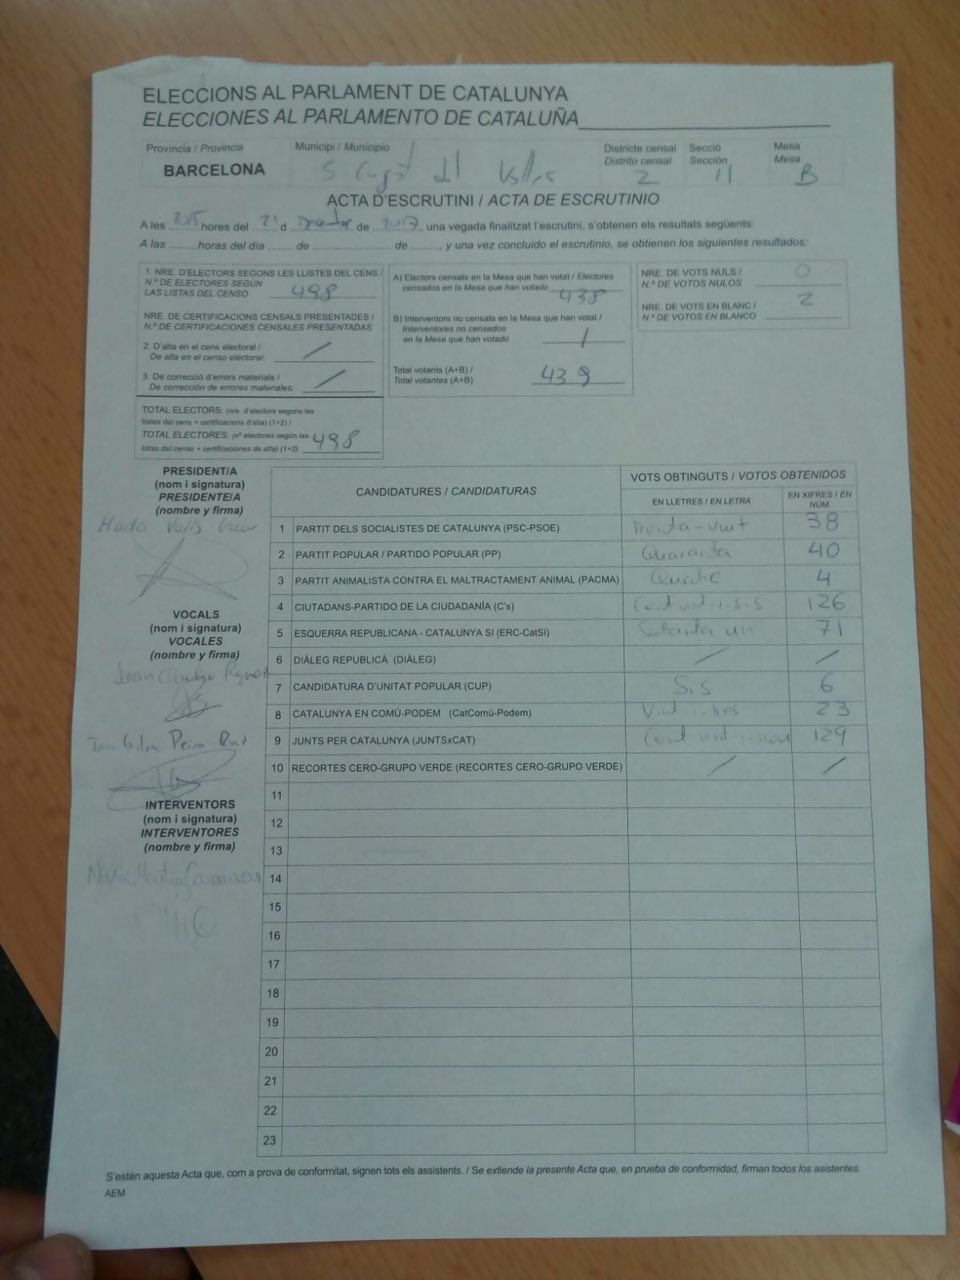 ELECCIONS AL PARLAMENT DE CATALUNYA
ELECCIONES AL PARLAMENTO DE CATALUÑA
Provincia / Provincia
Municipi / Municipio
Districte censal
Distrito censal
Secció
Sección
Mesa
Mesa
BARCELONA
S Cugat del Vallès
2
11
B
ACTA D'ESCRUTINI / ACTA DE ESCRUTINIO
A les hores del 21 d Desembre de 2017, una vegada finalitzat l'escrutini, s'obtenen els resultats següents:
A las ........ horas del día ...... de ............ de ......, y una vez concluido el escrutinio, se obtienen los siguientes resultados:
1. NRE. D'ELECTORS SEGONS LES LLISTES DEL CENS /
N.º DE ELECTORES SEGÚN
LAS LISTAS DEL CENSO 498
NRE. DE CERTIFICACIONS CENSALS PRESENTADES /
N.º DE CERTIFICACIONES CENSALES PRESENTADAS
2. D'alta en el cens electoral /
De alta en el censo electoral: /
3. De correcció d'errors materials /
De corrección de errores materiales: /
TOTAL ELECTORS: (nre. d'electors segons les
llistes del cens + certificacions d'alta) (1+2) /
TOTAL ELECTORES: (nº electores según las
listas del censo + certificaciones de alta) (1+2) 498
A) Electors censats en la Mesa que han votat / Electores
censados en la Mesa que han votado 438
B) Interventors no censats en la Mesa que han votat /
Interventores no censados
en la Mesa que han votado 1
Total votants (A+B) /
Total votantes (A+B) 439
NRE. DE VOTS NULS /
N.º DE VOTOS NULOS 0
NRE. DE VOTS EN BLANC /
N.º DE VOTOS EN BLANCO 2
PRESIDENT/A
(nom i signatura)
PRESIDENTE/A
(nombre y firma)
VOCALS
(nom i signatura)
VOCALES
(nombre y firma)
INTERVENTORS
(nom i signatura)
INTERVENTORES
(nombre y firma)
CANDIDATURES / CANDIDATURAS
VOTS OBTINGUTS / VOTOS OBTENIDOS
EN LLETRES / EN LETRA
EN XIFRES / EN NÚM.
1 PARTIT DELS SOCIALISTES DE CATALUNYA (PSC-PSOE) Trenta-vuit 38
2 PARTIT POPULAR / PARTIDO POPULAR (PP) Quaranta 40
3 PARTIT ANIMALISTA CONTRA EL MALTRACTAMENT ANIMAL (PACMA) Quatre 4
4 CIUTADANS-PARTIDO DE LA CIUDADANÍA (C's) Cent vint-i-sis 126
5 ESQUERRA REPUBLICANA - CATALUNYA SI (ERC-CatSí) Setanta un 71
6 DIÀLEG REPUBLICÀ (DIÀLEG) / /
7 CANDIDATURA D'UNITAT POPULAR (CUP) Sis 6
8 CATALUNYA EN COMÚ-PODEM (CatComú-Podem) Vint-i-tres 23
9 JUNTS PER CATALUNYA (JUNTSxCAT) Cent vint-i-nou 129
10 RECORTES CERO-GRUPO VERDE (RECORTES CERO-GRUPO VERDE) / /
11
12
13
14
15
16
17
18
19
20
21
22
23
S'estén aquesta Acta que, com a prova de conformitat, signen tots els assistents. / Se extiende la presente Acta que, en prueba de conformidad, firman todos los asistentes.
AEM